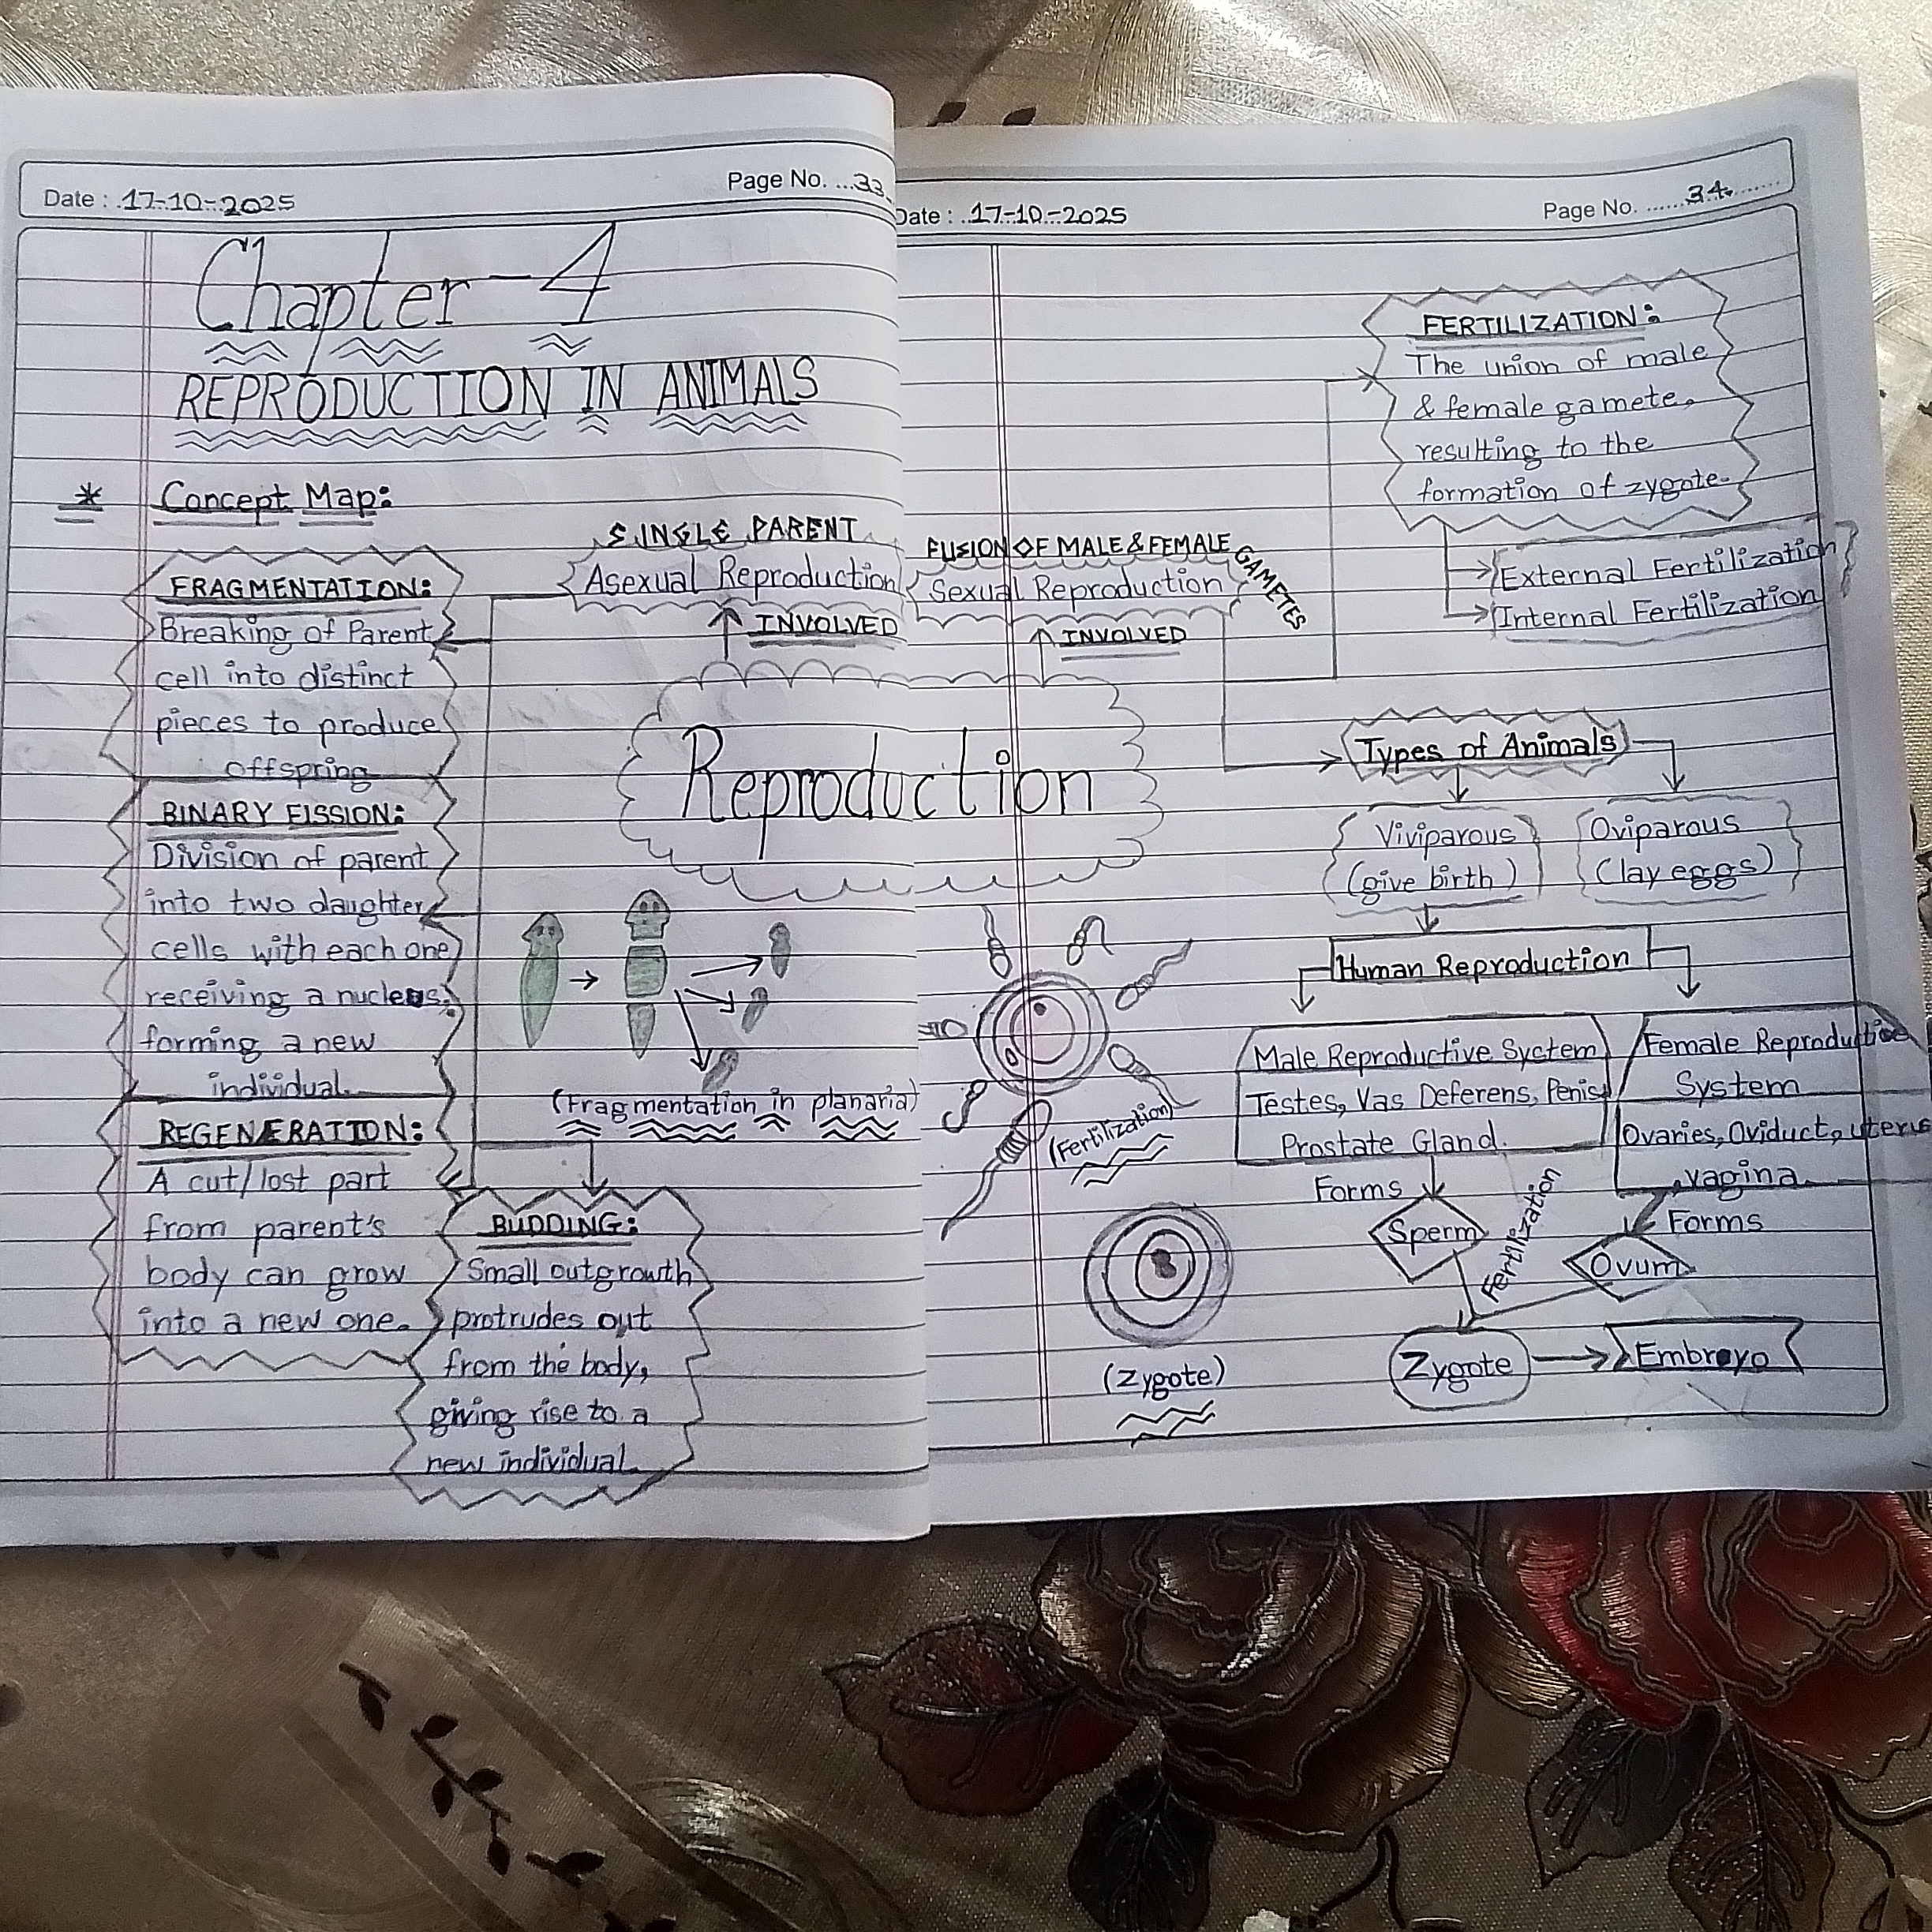 Date : 17-10-2025
Page No. 33
Chapter-4
REPRODUCTION IN ANIMALS
* Concept Map:
SINGLE PARENT
Asexual Reproduction
INVOLVED
FRAGMENTATION:
Breaking of Parent
cell into distinct
pieces to produce
offspring
BINARY FISSION:
Division of parent
into two daughter
cells with each one
receiving a nucleus,
forming a new
individual.
REGENERATION:
A cut/lost part
from parent's
body can grow
into a new one.
BUDDING:
Small outgrowth
protrudes out
from the body,
giving rise to a
new individual.
(Fragmentation in planaria)
Reproduction
Date : 17-10-2025
Page No. 34
FUSION OF MALE & FEMALE GAMETES
Sexual Reproduction
INVOLVED
FERTILIZATION:
The union of male
& female gamete,
resulting to the
formation of zygote.
External Fertilization
Internal Fertilization
Types of Animals
Viviparous
(give birth)
Oviparous
(lay eggs)
Human Reproduction
Male Reproductive System
Testes, Vas Deferens, Penis,
Prostate Gland.
Female Reproductive
System
Ovaries, Oviduct, uterus
vagina
Forms
Sperm
Forms
Ovum
Fertilization
Zygote
Embroyo
(Fertilization)
(Zygote)